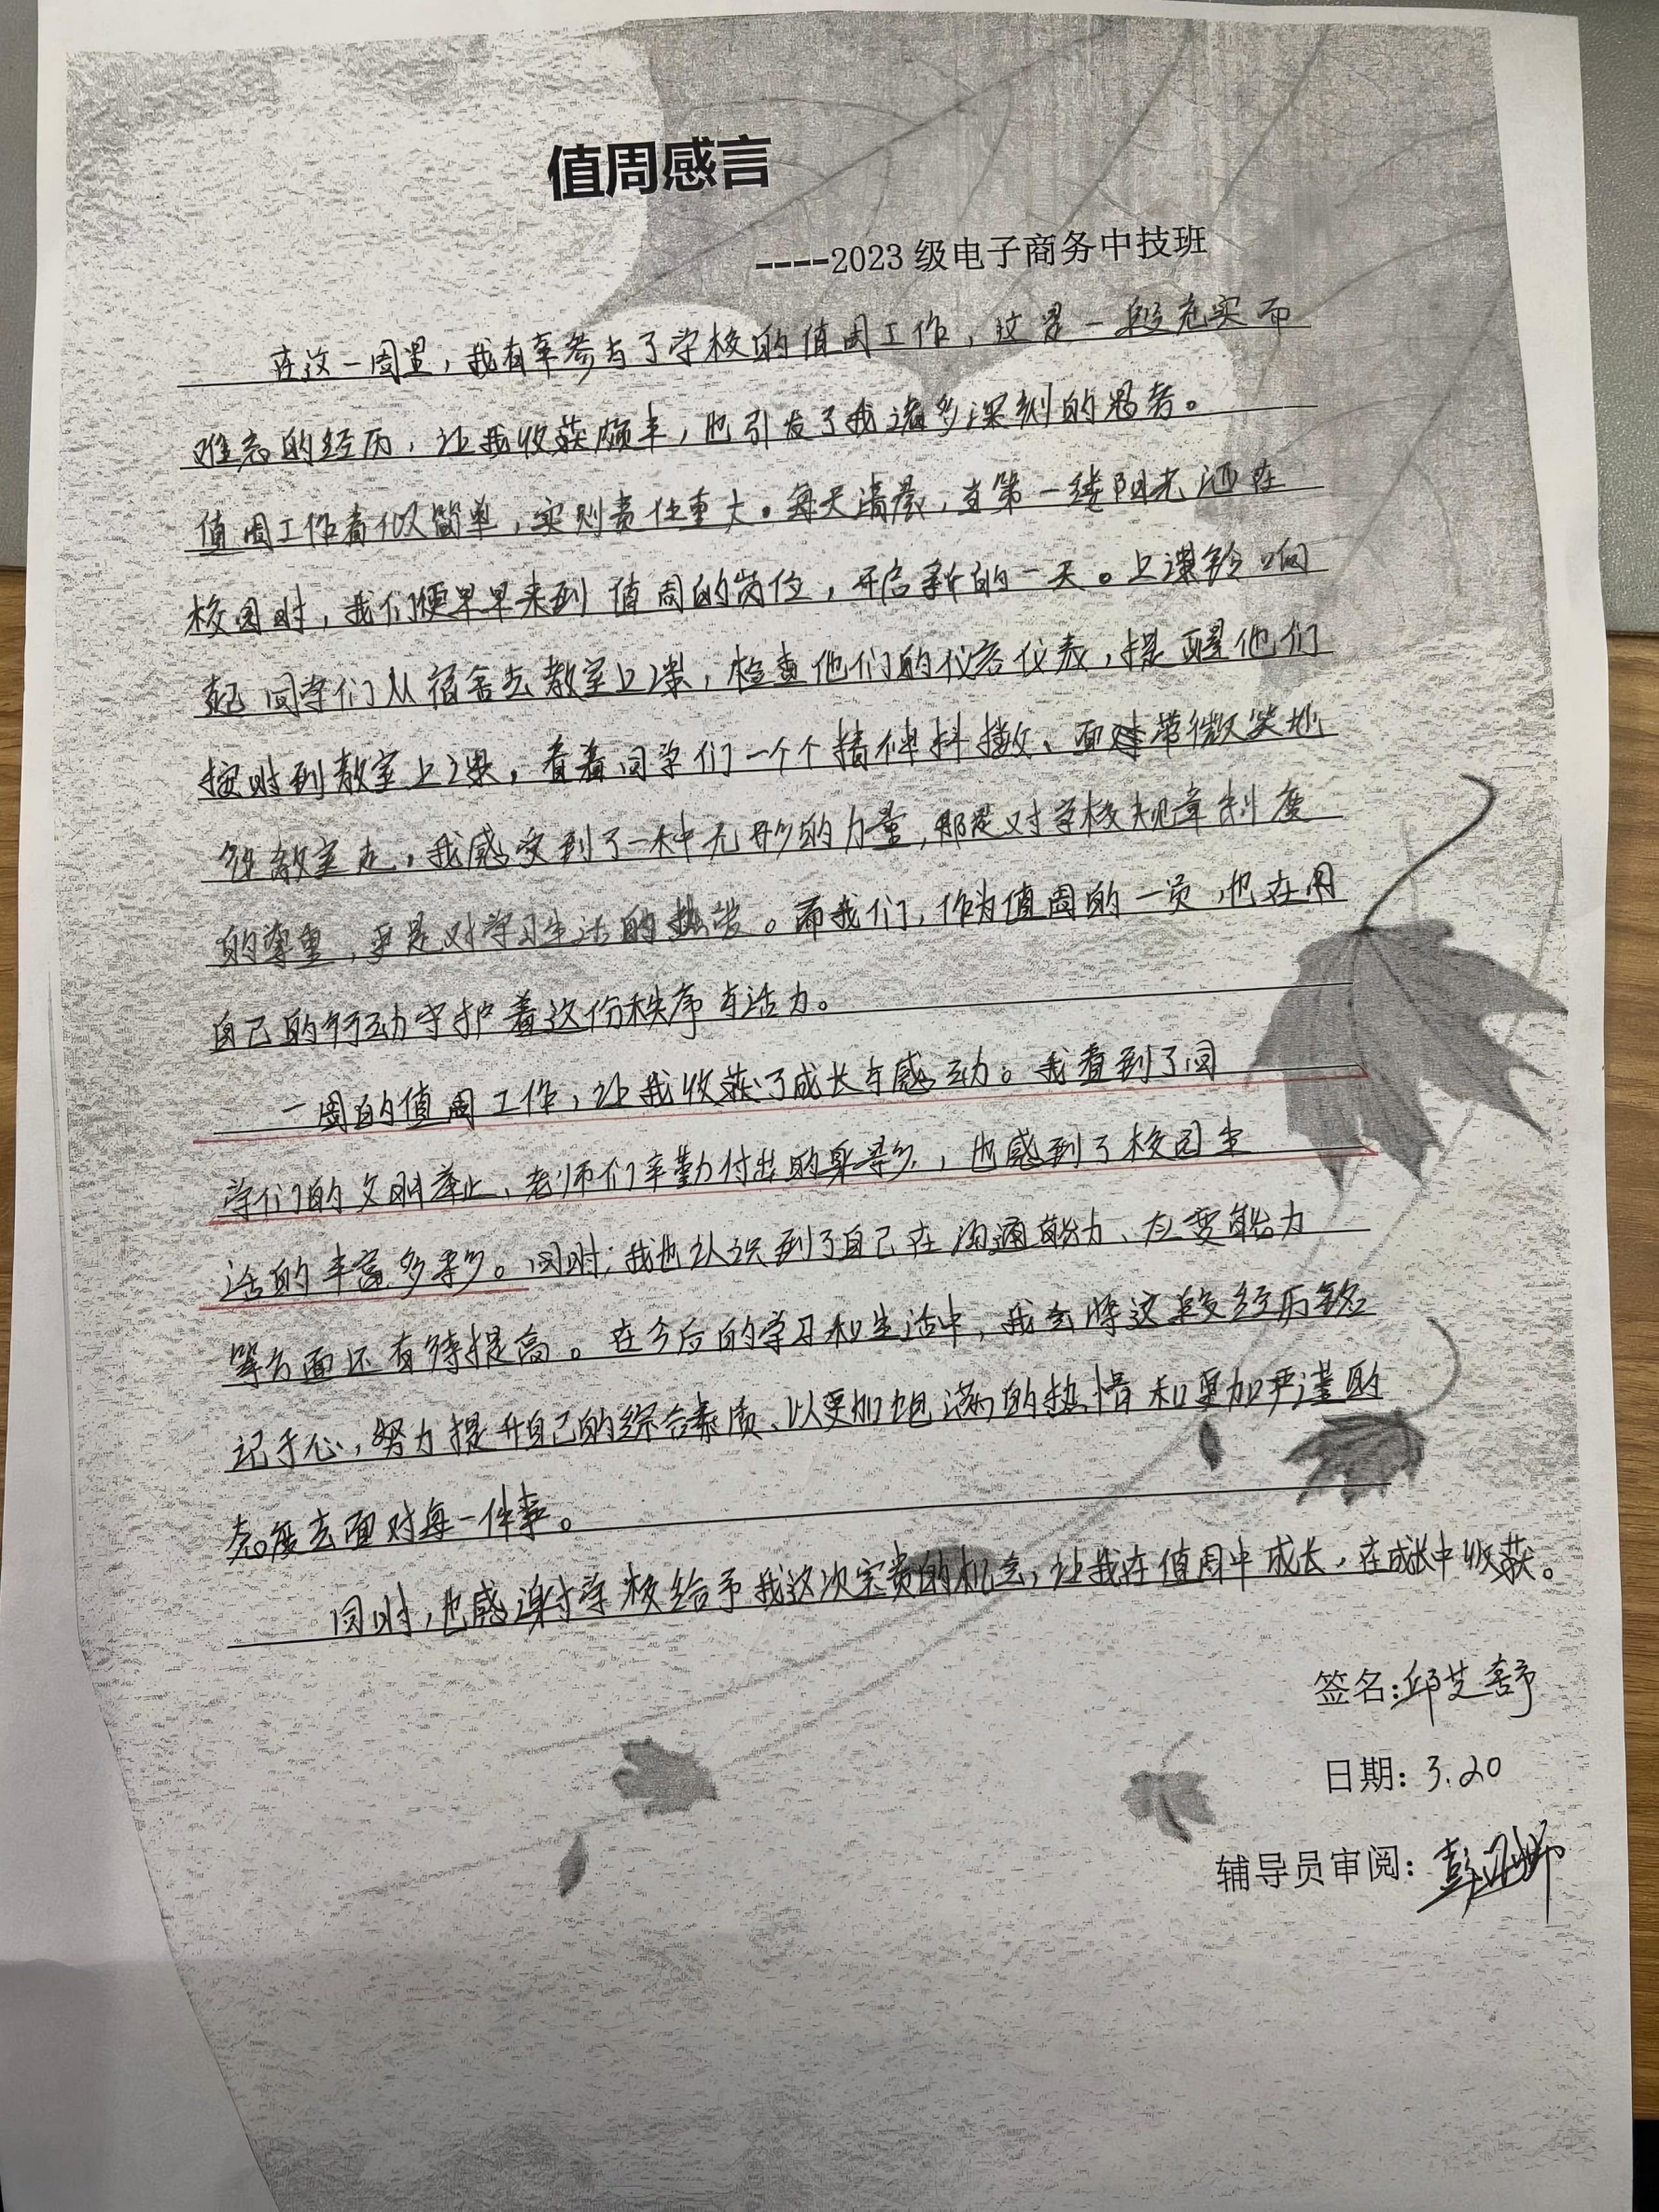 值周感言
----2023 级电子商务中技班
在这一周里，我有幸参与了学校的值周工作，这是一段充实而
难忘的经历，让我收获颇丰，也引发了我诸多深刻的思考。
值周工作看似简单，实则责任重大。每天清晨，当第一缕阳光洒在
校园时，我们便早早来到值周的岗位，开启新的一天。上课铃响
起同学们从宿舍去教室上课，检查他们的仪容仪表，提醒他们
按时到教室上课，看着同学们一个个精神抖擞、面带微笑地
往教室走，我感受到了一种无形的力量，那是对学校规章制度
的尊重，更是对学习生活的热爱。而我们，作为值周的一员，也在用
自己的行动守护着这份秩序与活力。
一周的值周工作，让我收获了成长与感动。我看到了同
学们的文明举止、老师们辛勤付出的身影，也感到了校园生
活的丰富多彩。同时，我也认识到了自己在沟通能力、应变能力
等方面还有待提高。在今后的学习和生活中，我会将这段经历铭
记于心，努力提升自己的综合素质、以更加饱满的热情和更加严谨的
态度去面对每一件事。
同时，也感谢学校给予我这次宝贵的机会，让我在值周中成长，在成长中收获。
签名：邱芝舒
日期：3.20
辅导员审阅：